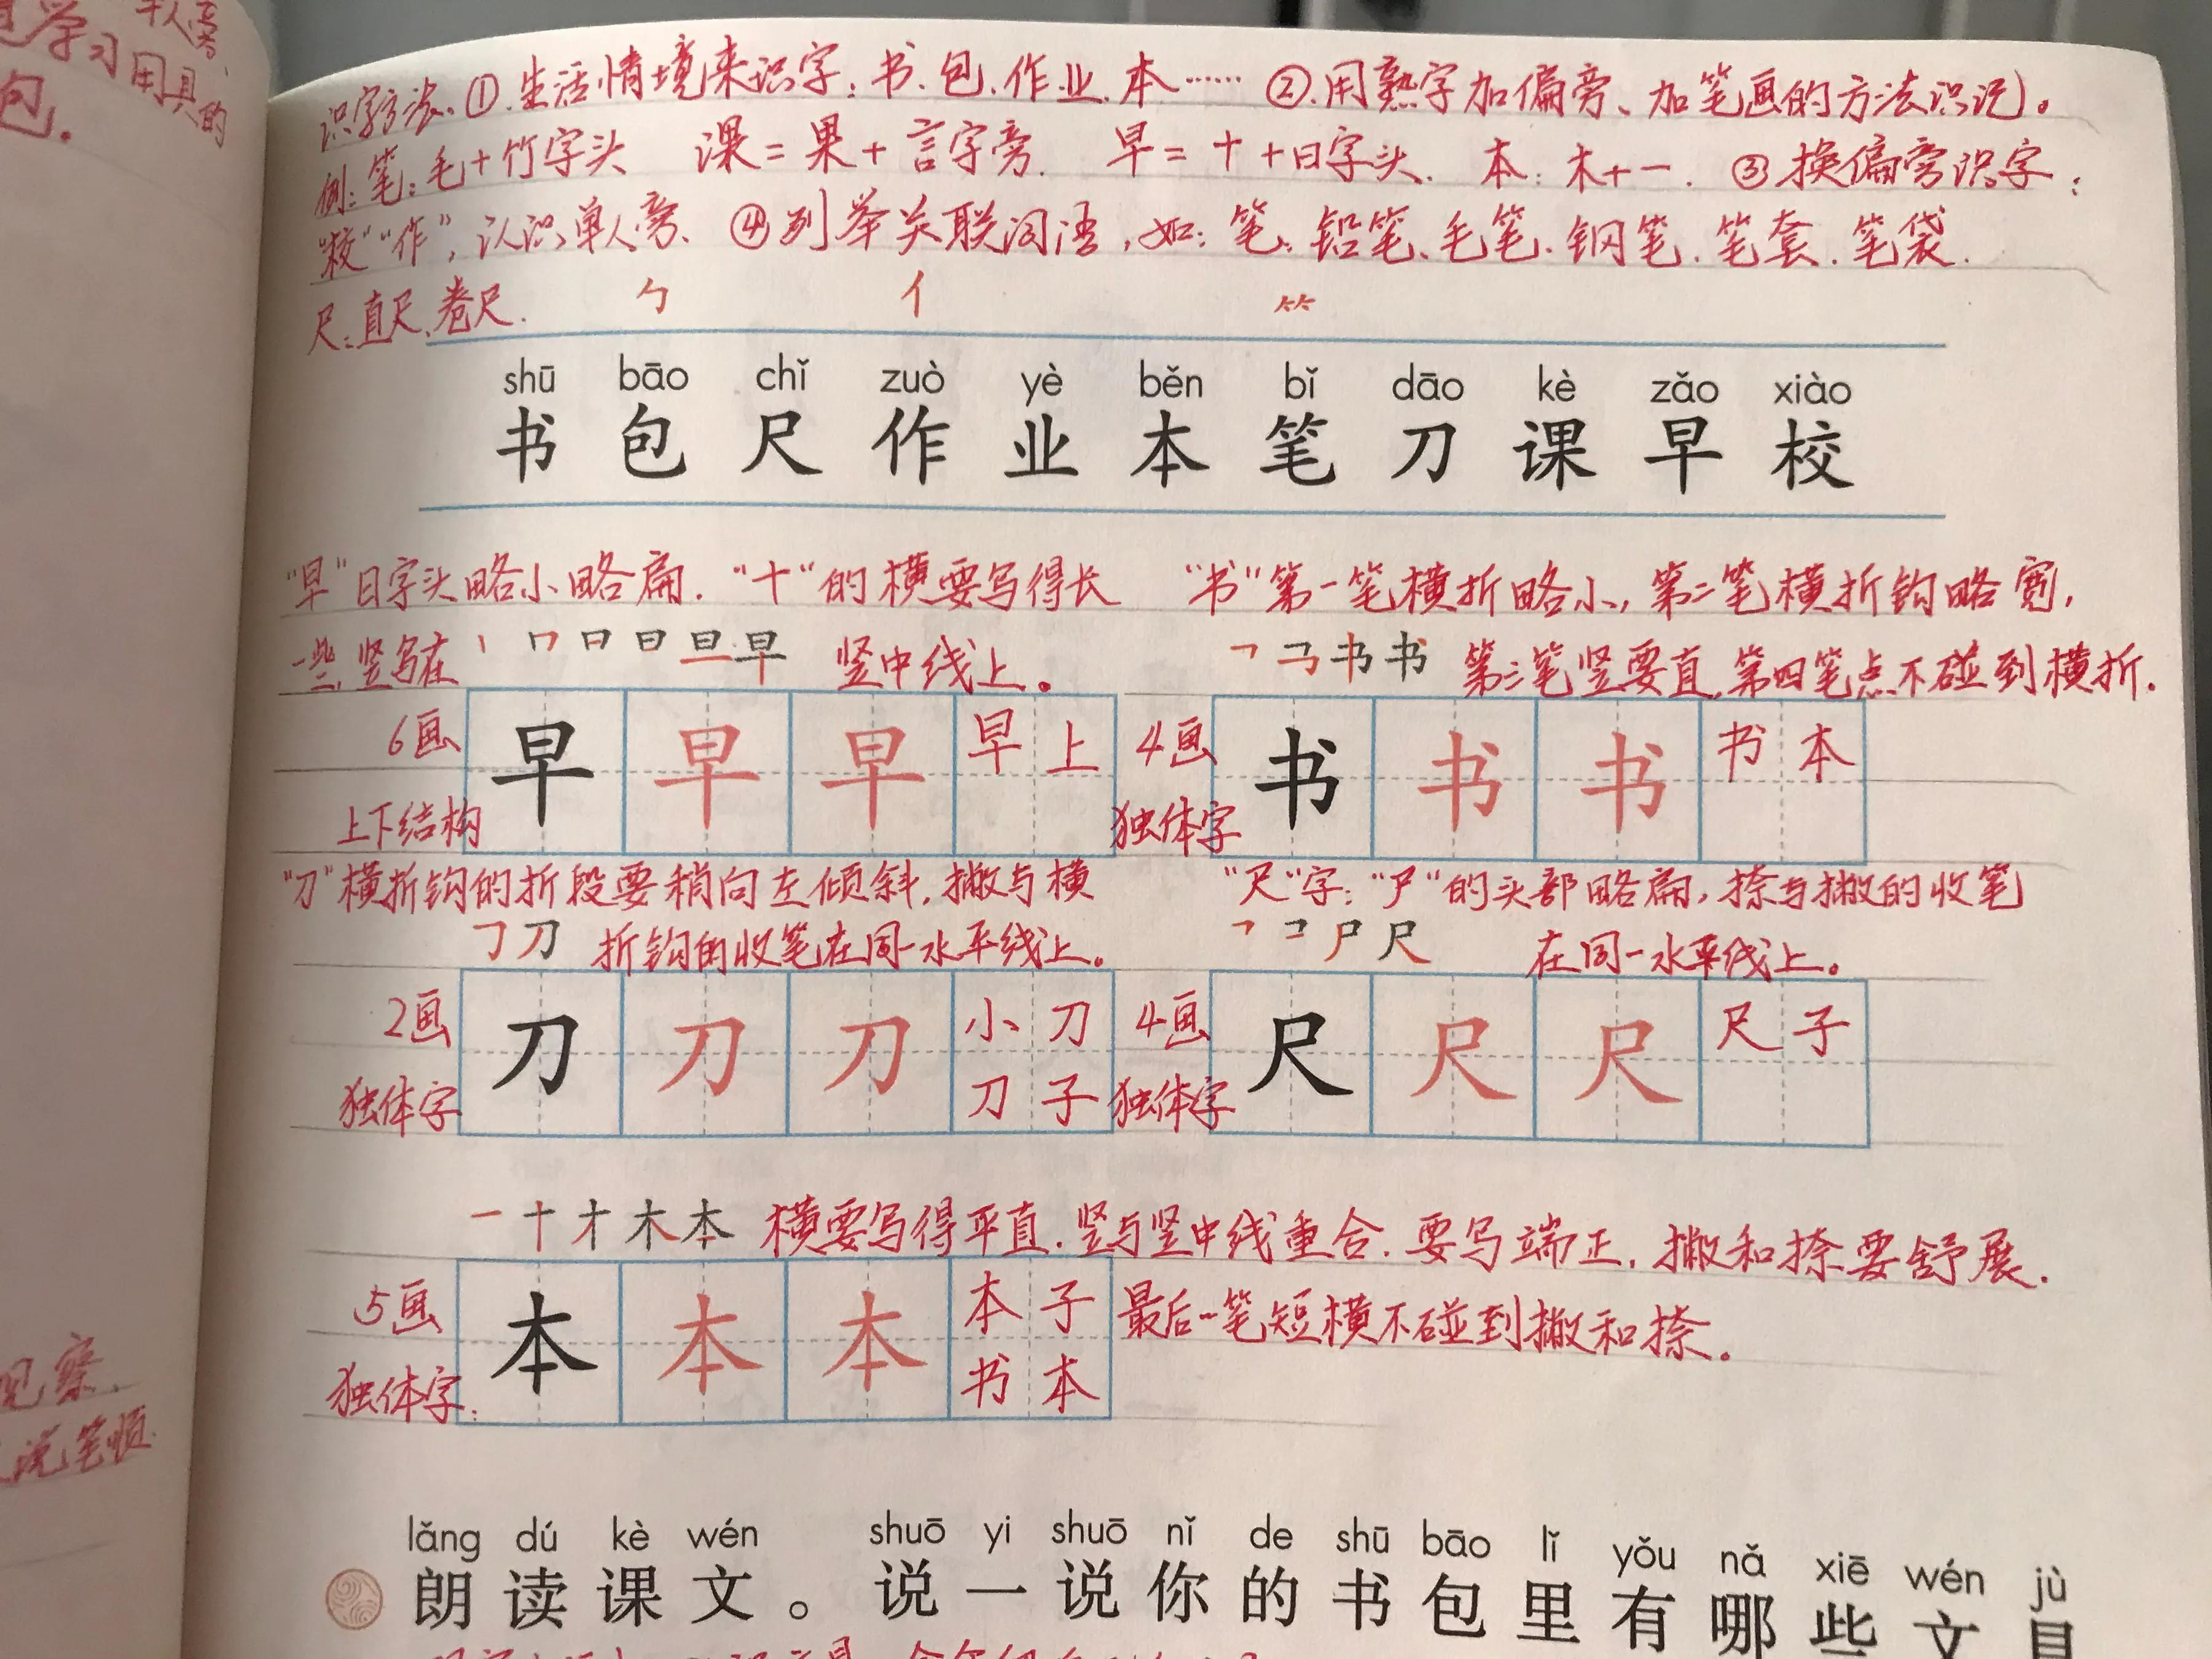 千人旁、
学习用具的
包。
识字方法、①.生活情境来识字:书、包、作业、本…… ②.用熟字加偏旁、加笔画的方法识记。
例:笔:毛+竹字头 课=果+言字旁. 早=十+日字头. 本:木+一. ③换偏旁识字:
“校”“作”,认识单人旁、④列举关联词语,如:笔:铅笔、毛笔、钢笔、笔套、笔袋.
尺:直尺、卷尺. 勹 亻 ⺮
shū bāo chǐ zuò yè běn bǐ dāo kè zǎo xiào
书 包 尺 作 业 本 笔 刀 课 早 校
“早”日字头略小略扁.“十”的横要写得长
一些,竖写在 丨 冂 日 日 旦 早 竖中线上。
6画 早 早 早 早上
上下结构
“书”第一笔横折略小,第二笔横折钩略宽,
书 第三笔竖要直,第四笔点不碰到横折.
4画 书 书 书 书本
独体字
“刀”横折钩的折段要稍向左倾斜,撇与横
𠃌 刀 折钩的收笔在同一水平线上。
2画 刀 刀 刀 小刀
独体字 刀子
“尺”字:“尸”的头部略扁,捺与撇的收笔
㇕ コ 尸 尺 在同一水平线上。
4画 尺 尺 尺 尺子
独体字
一 十 才 木 本 横要写得平直.竖与竖中线重合.要写端正,撇和捺要舒展.
5画 本 本 本 本子 最后一笔短横不碰到撇和捺。
独体字: 书本
观察
说笔顺
lǎng dú kè wén shuō yi shuō nǐ de shū bāo lǐ yǒu nǎ xiē wén jù
朗读课文。说一说你的书包里有哪些文具